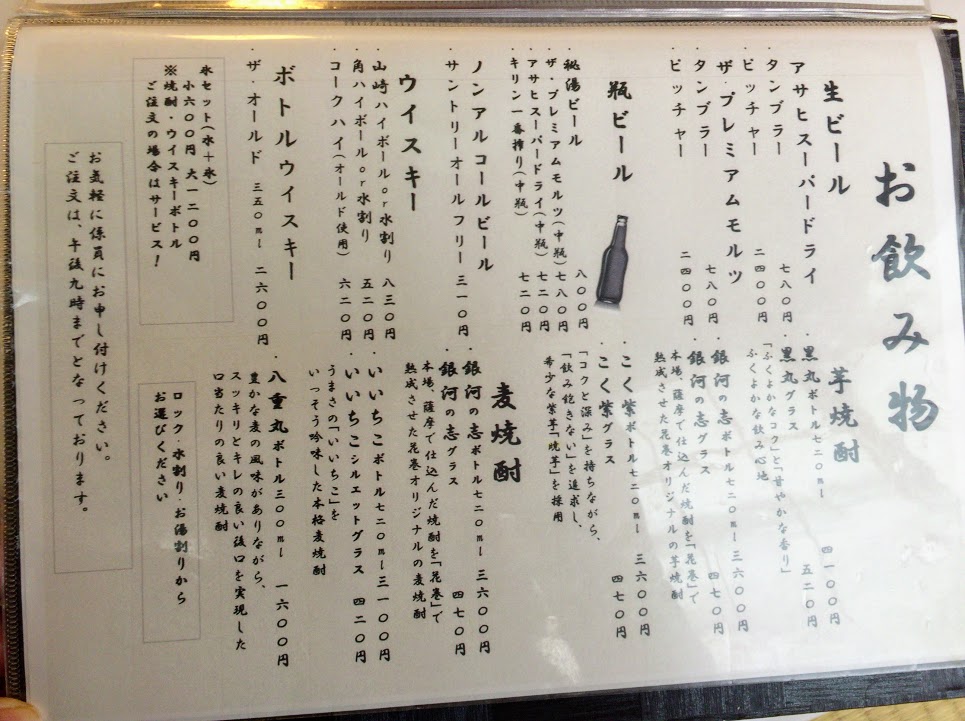 お飲み物
生ビール
アサヒスーパードライ
・タンブラー 七八〇円
・ピッチャー 二四〇〇円
ザ・プレミアムモルツ
・タンブラー 七八〇円
・ピッチャー 二四〇〇円
瓶ビール
・秘湯ビール 八〇〇円
・ザ・プレミアムモルツ(中瓶) 七八〇円
・アサヒスーパードライ(中瓶) 七二〇円
・キリン一番搾り(中瓶) 七二〇円
ノンアルコールビール
・サントリーオールフリー 三一〇円
ウイスキー
・山崎ハイボールor水割り 八三〇円
・角ハイボールor水割り 五二〇円
・コークハイ(オールド使用) 六二〇円
ボトルウィスキー
・ザ・オールド 三五〇ml 二六〇〇円
氷セット(水+氷)
小六〇〇円 大一二〇〇円
※焼酎・ウイスキーボトル
ご注文の場合はサービス!
芋焼酎
・黒丸ボトル七二〇ml 四一〇〇円
・黒丸グラス 五二〇円
「ふくよかなコクと甘やかな香り」
ふくよかな飲み心地
・銀河の志ボトル七二〇ml 三六〇〇円
・銀河の志グラス 四七〇円
本場、薩摩で仕込んだ焼酎を「花巻」で
熟成させた花巻オリジナルの芋焼酎
・こく紫ボトル七二〇ml 三六〇〇円
・こく紫グラス 四七〇円
「コクと深み」を持ちながら、
「飲み飽きない」を追求し、
希少な紫芋「焼芋」を採用
麦焼酎
・銀河の志ボトル七二〇ml 三六〇〇円
・銀河の志グラス 四七〇円
本場、薩摩で仕込んだ焼酎を「花巻」で
熟成させた花巻オリジナルの麦焼酎
・いいちこボトル七二〇ml 三一〇〇円
・いいちこシルエットグラス 四二〇円
うまさの「いいちこ」を
いっそう吟味した本格麦焼酎
・八重丸ボトル三〇〇ml 一六〇〇円
豊かな麦の風味がありながら、
スッキリとキレの良い後口を実現した
口当たりの良い麦焼酎
ロック・水割り・お湯割りから
お選びください
お気軽に係員にお申し付けください。
ご注文は、午後九時までとなっております。